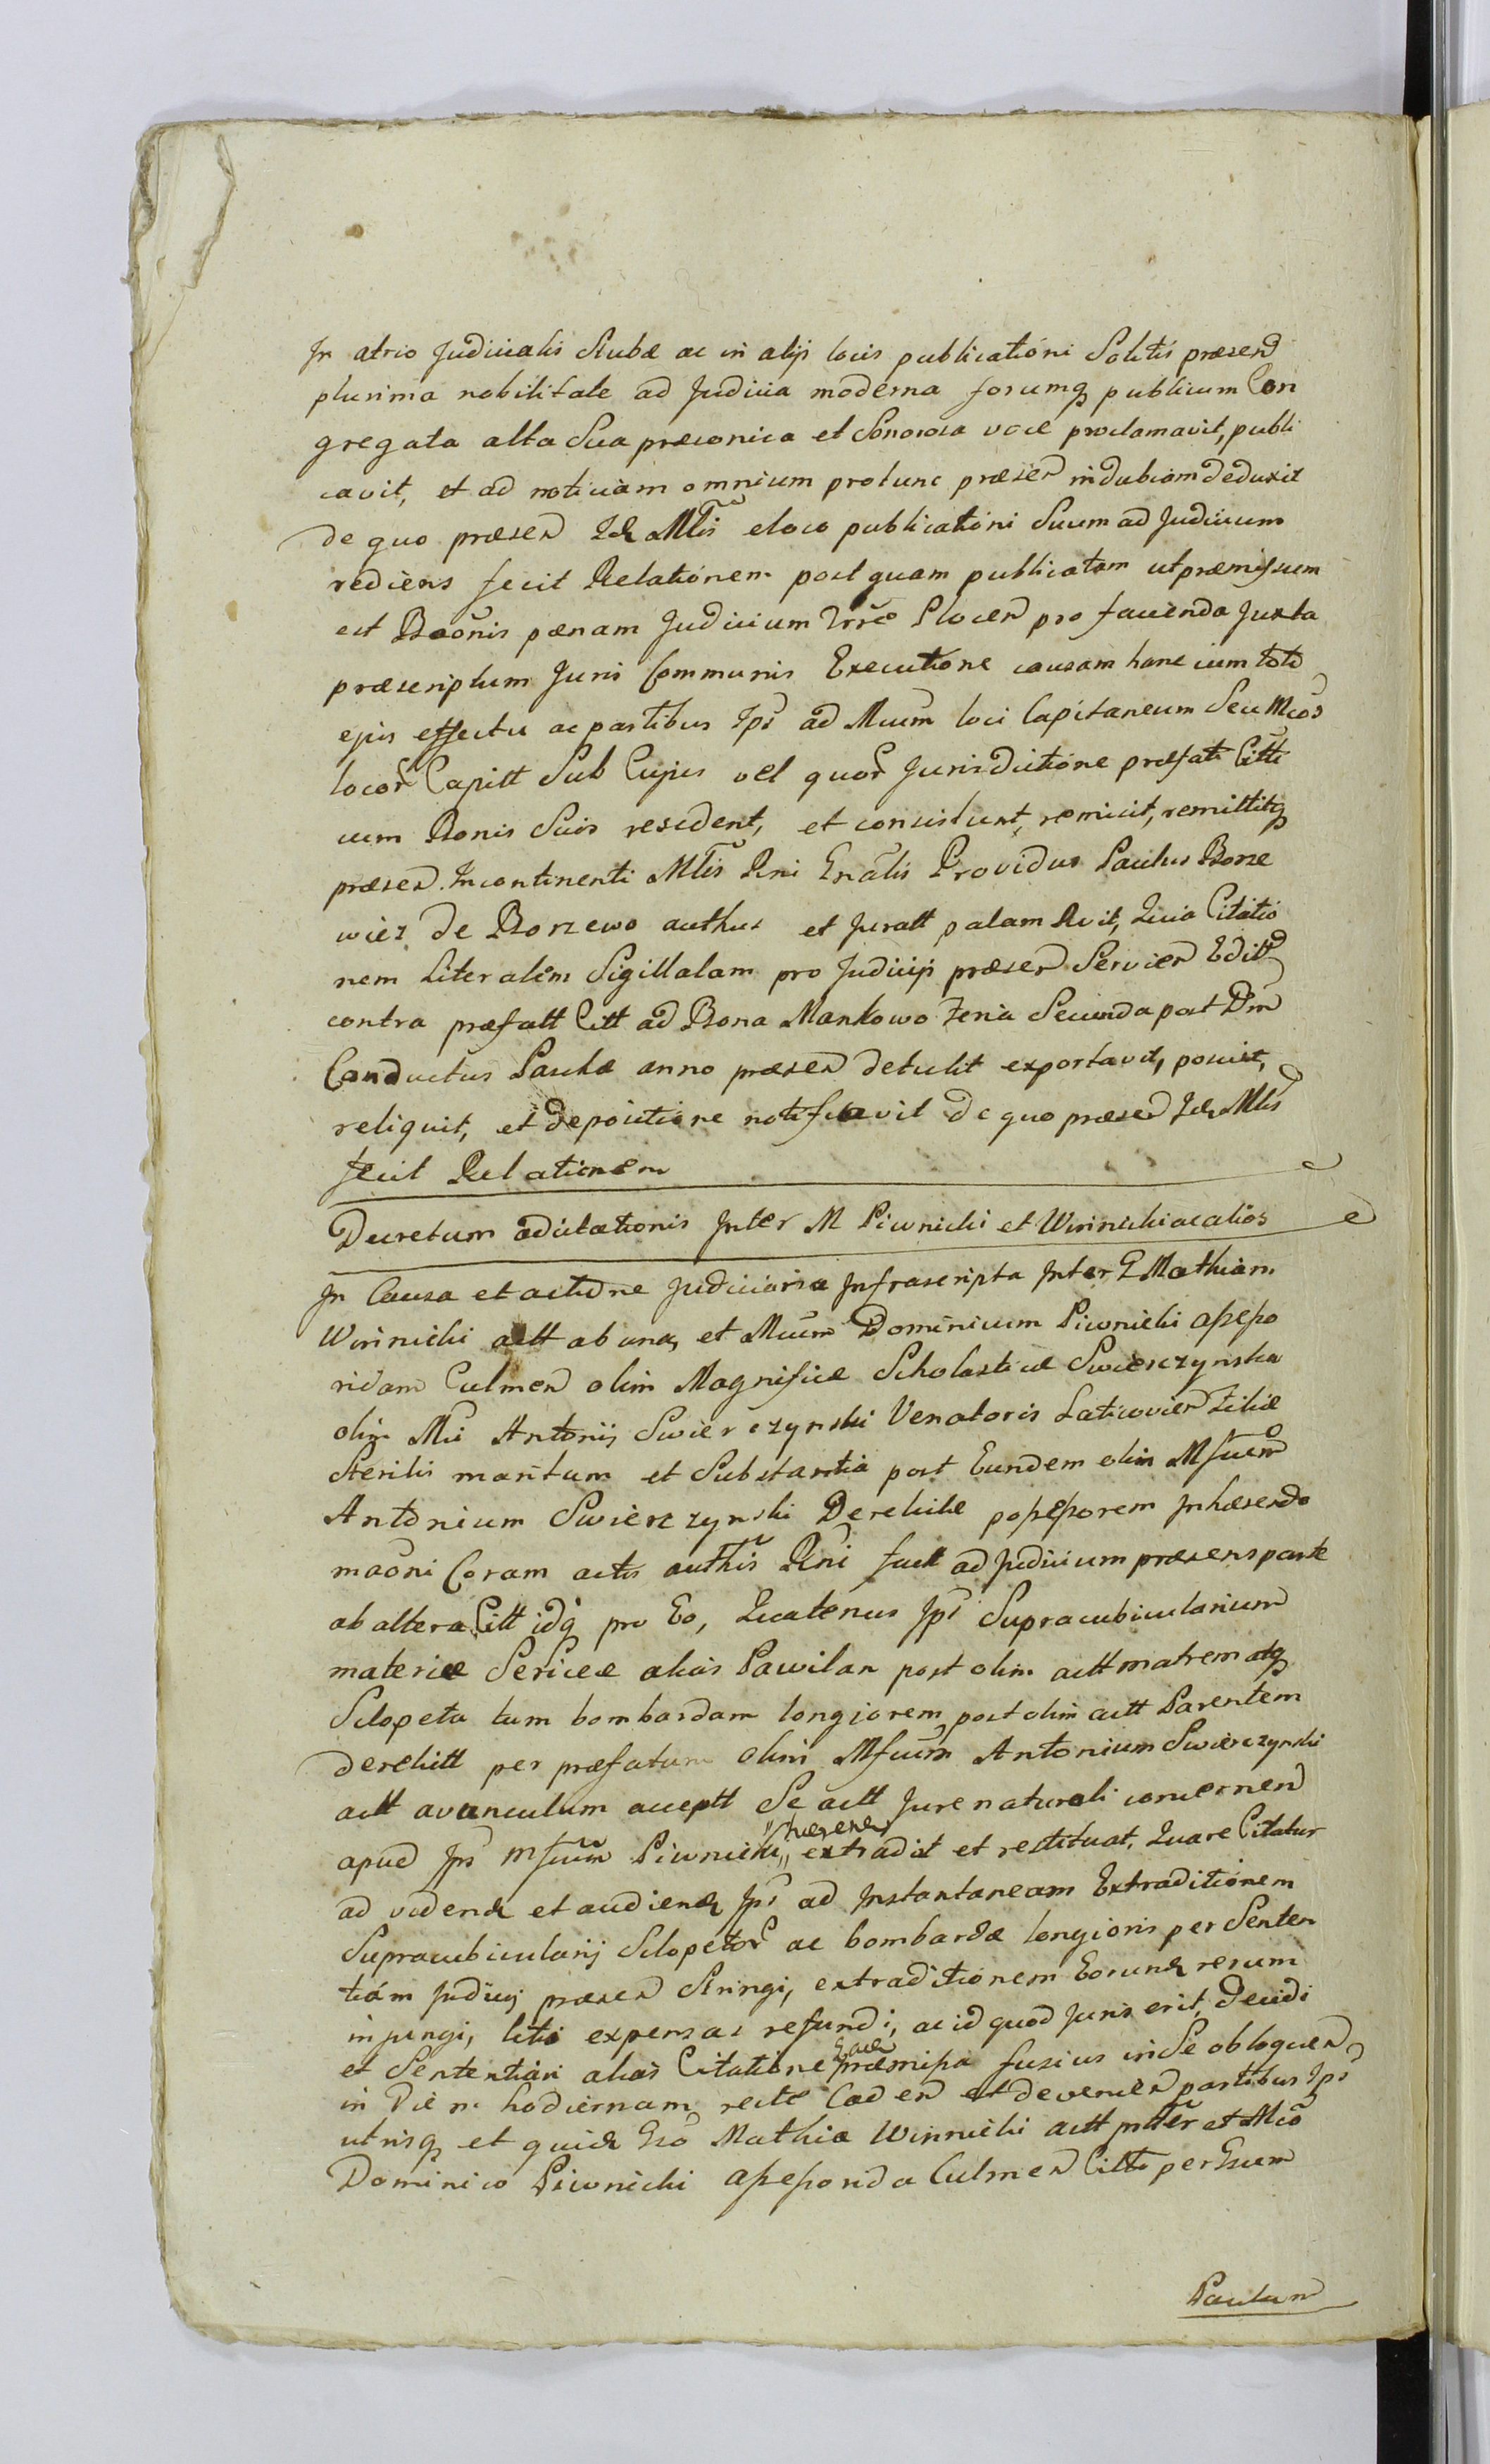 In atrio Judicialis Stubæ ac in alijs locis publicationi Solitis præsen
plurima nobilitate ad Judicia moderna forumq publicum Con
gregata alta Sua præconica et Sonorosa voce proclamavit, publi
cavit, et ad noticiam omnium protunc præsen indubiam deduxit
de quo præsen Id Mtlis eloco publicationi Suum ad Judicium
rediens fecit Relationem post quam publicatam ut præmissum
est Baonis pænam Judicium Trre Plocen pro facienda Juxta
præscriptum Juris Communis Executione causam hanc cum toto
ejus effectu ac partibus Ips ad Mcum loci Capitaneum Seu Mcos
locor Capitt Sub Cujus vel quor Jurisdictione præfati Citti
cum Bonis Suis resident, et consistunt, remisit, remittitq
præsen. Incontinenti Mtlis Rni Gnalis Providus Paulus Borze
wicz de Borzewo authus et Juratt palam Rvit, Quia Citatio
nem Literalem Sigillatam pro Judicijs præsen Servien Editt
contra præfatt Citt ad Bona Mankowo Feria Secunda post Dm
Conductus Paschæ anno præsen detulit exportavit, posuit,
reliquit, et depositione notificavit de quo præsen Id Mtlis
fecit Relationem
Decretum adcitationis Inter M Piwnicki et Winnicki ac alios
In Causa et actione Judiciaria Infrascripta Inter G Mathiam
Winnicki actt ab una, et Mcum Dominicum Piwnicki assesso
ridam Culmen olim Magnificæ Scholasticæ Swierczynska
olim Mci Antonij Swierczynski Venatoris Laticovien Filiæ
Sterilis maritum et Substantia post Eundem olim Mfcum
Antonium Swierczynski Derelictæ possessorem Inhærendo
maoni Coram actis authis Rni fact ad Judicium præsens parte
ab altera Citt idq pro Eo, Quatenus Ips Supracubicularium
materiæ Sericeæ alias Pawilan post olim actt matrem atq
Sclopeta tum bombardam longiorem post olim actt Parentem
derelictt per præfatum olim Mfcum Antonium Swierczynski
actt avunculum acceptt Se actt Jure naturali concernen
apud Ips Mfcum Piwnicki extradat et restituat, Quare Citatur
ad viden et audien Ips ad Instantaneam Extraditionem
Supracubicularij Sclopetor ac bombardæ longioris per Senten
tiam Judicij præsen Stringi, extraditionem Eorund rerum
injungi, litis expensas refundi, ac id quod Juris erit, Decidi
et Sententiari alias Citatione Eace præmissa fusius in Se obloquen
in Diem hodiernam recte Caden et devenien partibus Ips
utrisq et quid Gso Mathia Winnicki actt ptter et Mco
Dominico Piwnicki assessorida Culmen Citto per Gsum
Paulum